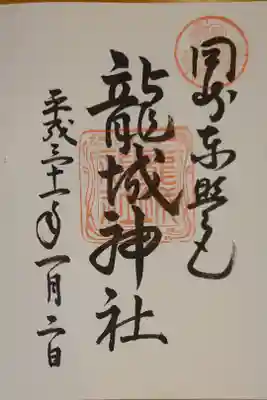 岡崎東照宮
龍城神社
平成三十一年一月二日